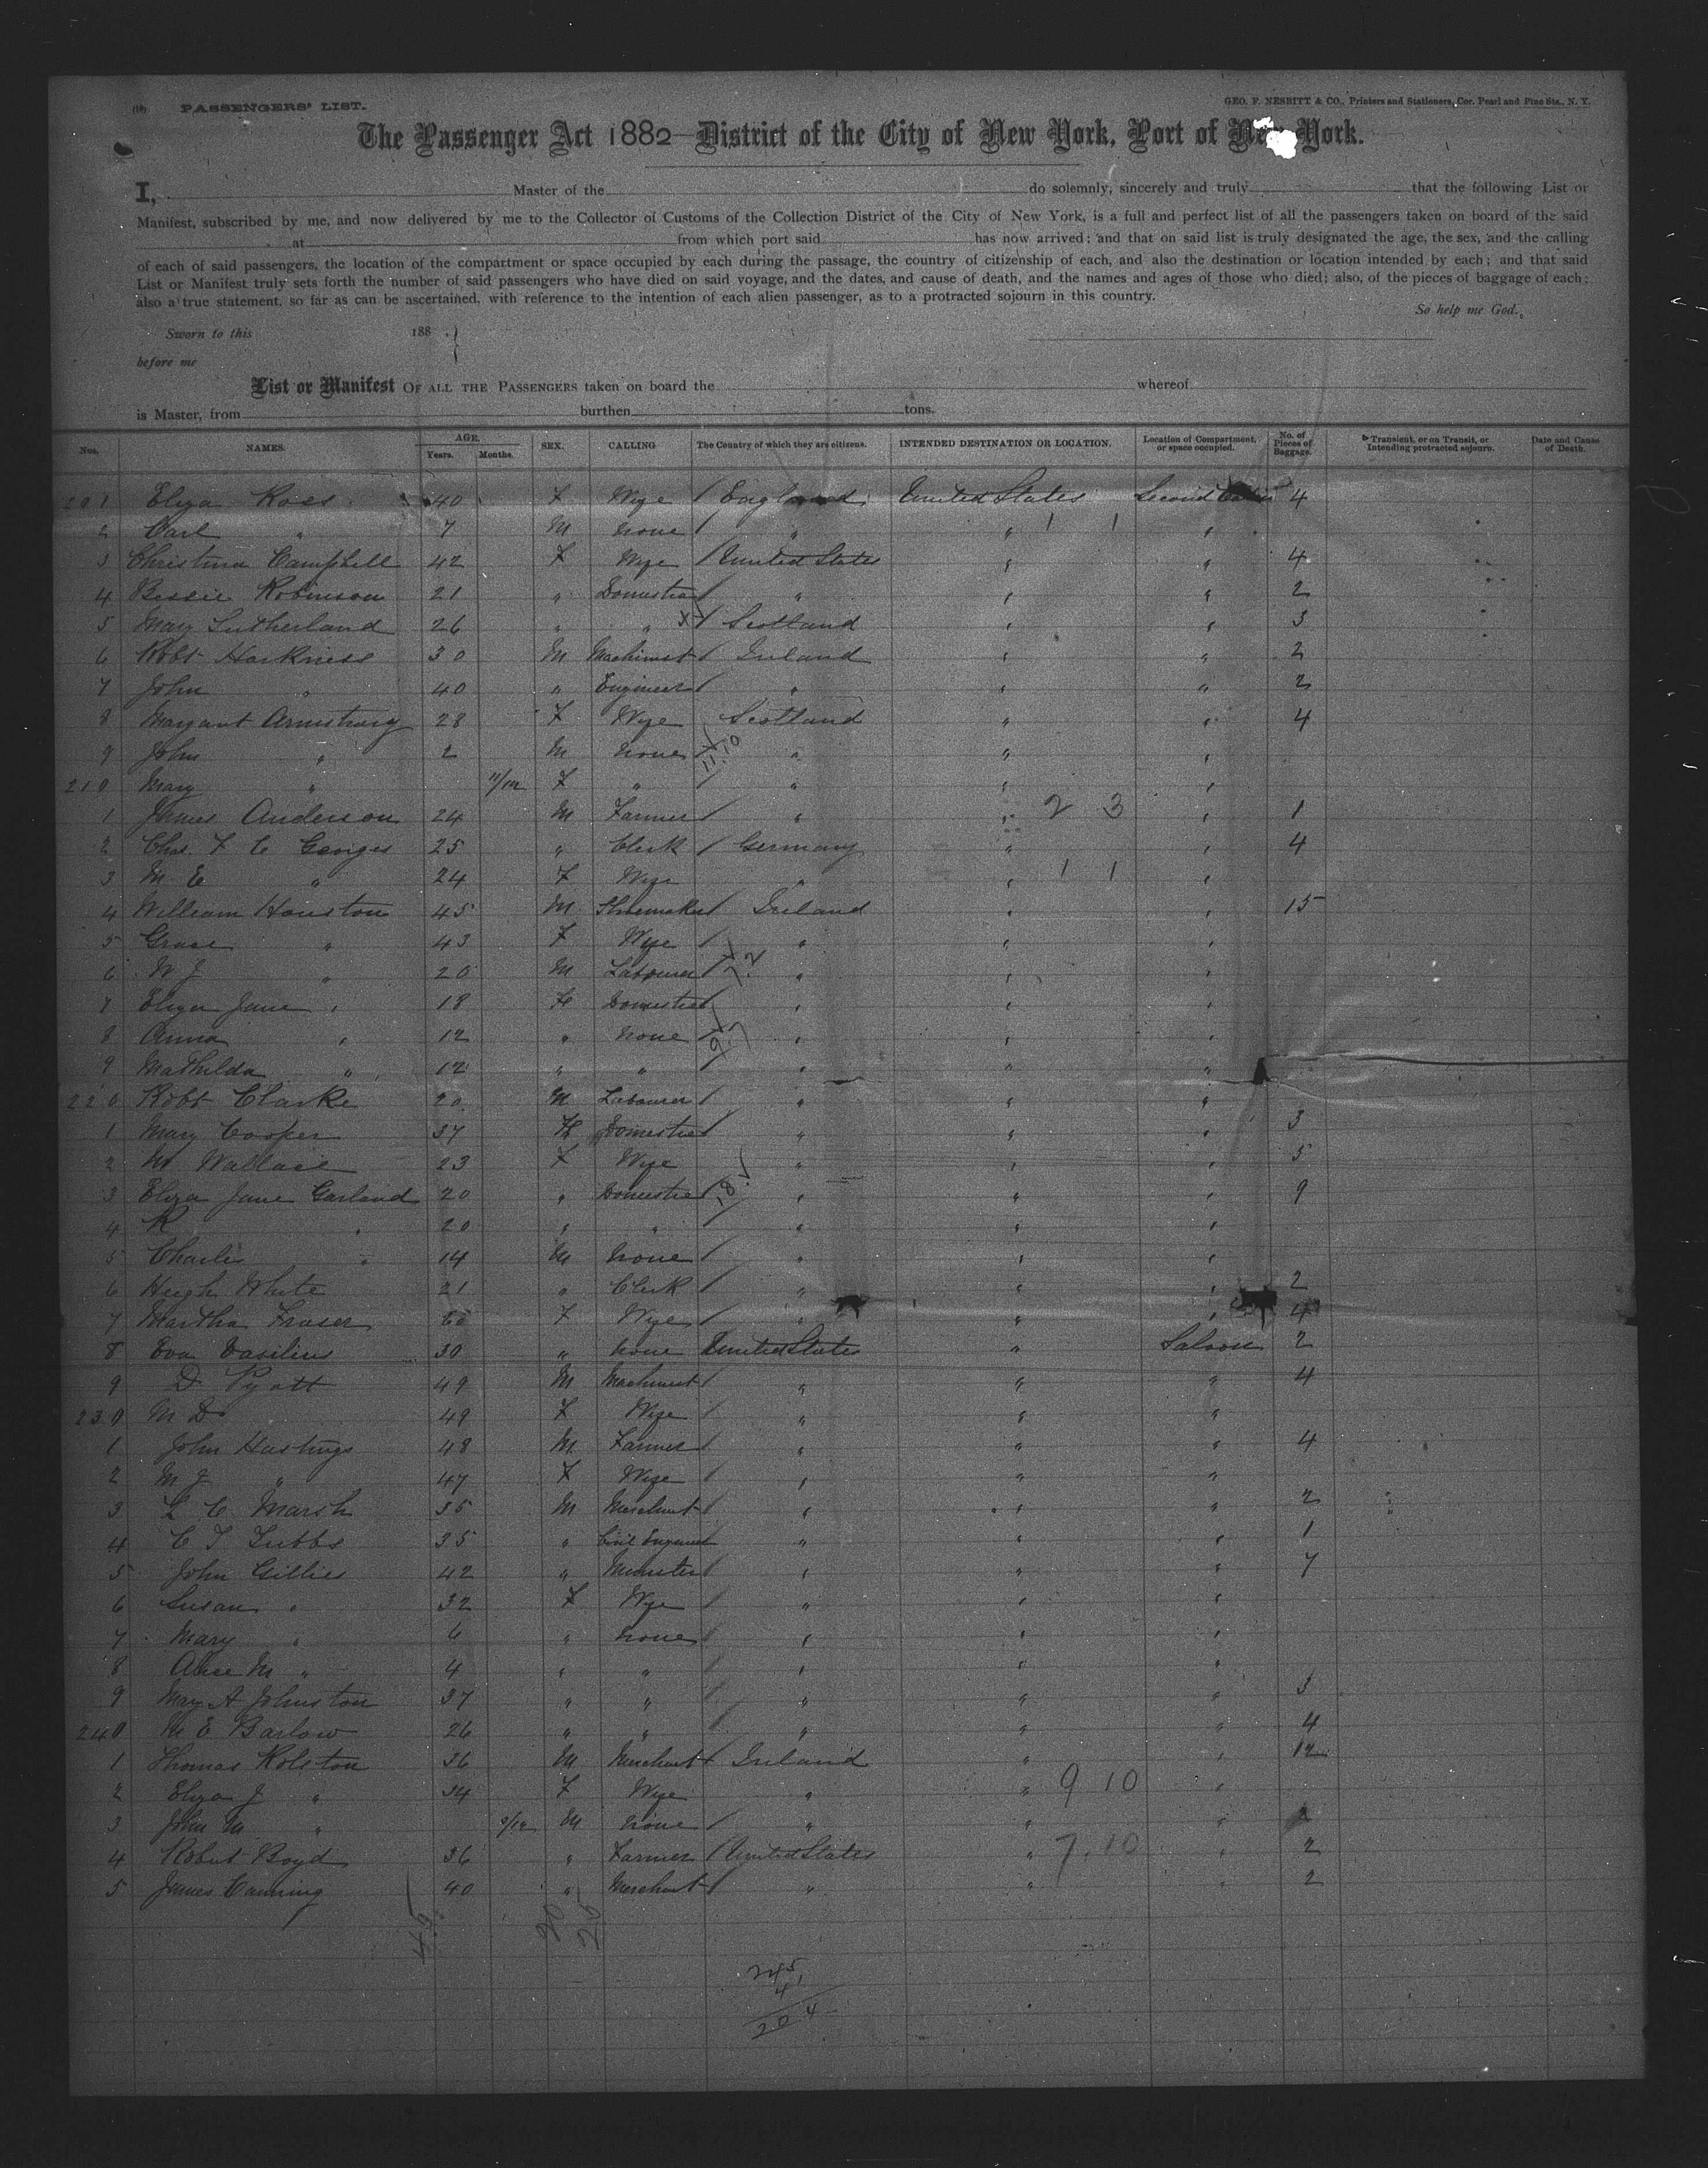 (18) PASSENGERS' LIST. GEO. F. NESBITT & CO., Printers and Stationers, Cor. Pearl and Pine Sts., N. Y.
The Passenger Act 1882 — District of the City of New York, Port of New York.
I, Master of the do solemnly, sincerely and truly that the following List or
Manifest, subscribed by me, and now delivered by me to the Collector of Customs of the Collection District of the City of New York, is a full and perfect list of all the passengers taken on board of the said
at from which port said has now arrived; and that on said list is truly designated the age, the sex, and the calling
of each of said passengers, the location of the compartment or space occupied by each during the passage, the country of citizenship of each, and also the destination or location intended by each; and that said
List or Manifest truly sets forth the number of said passengers who have died on said voyage, and the dates, and cause of death, and the names and ages of those who died; also, of the pieces of baggage of each;
also a true statement, so far as can be ascertained, with reference to the intention of each alien passenger, as to a protracted sojourn in this country.
So help me God.
Sworn to this 188 . }
before me
List or Manifest OF ALL THE PASSENGERS taken on board the whereof
is Master, from burthen tons.
Nos. NAMES. AGE. Years. Months. SEX. CALLING The Country of which they are citizens. INTENDED DESTINATION OR LOCATION. Location of Compartment, or space occupied. No. of Pieces of Baggage. Transient, or on Transit, or Intending protracted sojourn. Date and Cause of Death.
201 Eliza Ross 40 F Wife / England United States Second Cabin 4
2 Carl " 7 M None / " " 1 1 "
3 Christina Campbell 42 F Wife / United States " " 4
4 Bessie Robinson 21 " Domestic / " " " 2
5 Mary Sutherland 26 " " X / Scotland " " 3
6 Robt Harkness 30 M Machinist / Ireland " " 2
7 John " 40 " Engineer / " " " 2
8 Margaret Armstrong 28 F Wife Scotland " " 4
9 John " 2 M None / 11.10 " " "
210 Mary " 11/12 F " / " " "
1 James Anderson 24 M Farmer / " " 2 3 " 1
2 Chas. F C Georges 25 " Clerk / Germany " " 4
3 M E " 24 F Wife " " 1 1 "
4 William Houston 45 M Shoemaker / Ireland " " 15
5 Grace " 43 F Wife / " " "
6 W J " 20 M Labourer / " " "
7 Eliza Jane " 18 F Domestic / " " "
8 Anna " 12 " None / " " "
9 Mathilda " 12 " " / " " "
220 Robt Clarke 20 M Labourer / " " "
1 Mary Cooper 37 F Domestic / " " " 3
2 Wallace 23 F Wife " " " 5
3 Eliza Jane Garland 20 " Domestic / 18 " " " 9
4 R " 20 " " / " " "
5 Charlie " 14 M None / " " "
6 Hugh White 21 " Clerk / " " " 2
7 Martha Fraser F Wife / " " " 4
8 Eva Vasilius 30 " None United States " Saloon 2
9 D Pyott 49 M Machinist / " " " 4
230 M D " 49 F Wife / " " "
1 John Hastings 48 M Farmer / " " " 4
2 M J " 47 F Wife / " " "
3 L C Marsh 35 M Merchant / " " " 2
4 C T Tubbs 35 " Civil Engineer " " " 1
5 John Gillies 42 " Minister / " " " 7
6 Susan " 32 F Wife / " " "
7 Mary " 6 " None / " " "
8 Alice M " 4 " " / " " "
9 Mary A Johnston 37 " " / " " " 3
240 M E Barlow 26 " " / " " " 4
1 Thomas Rolston 36 M Merchant / Ireland " " 12
2 Eliza J " 34 F Wife " " 9 10 "
3 John M " 9/12 M None / " " "
4 Robert Boyd 36 " Farmer / United States " 7.10 " 2
5 James Canning 40 " Merchant / " " " 2
45 20 25
245
4
204